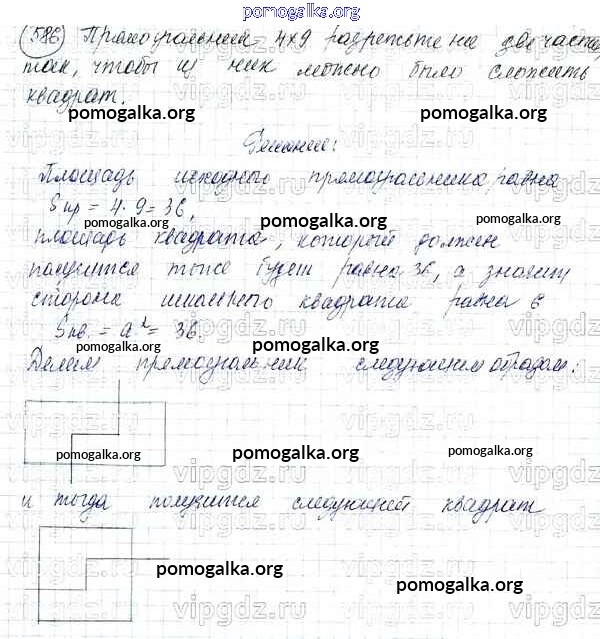 pomogalka.org
586 Прямоугольник 4х9 разрежьте на две части
pomogalka.org
так, чтобы из них можно было сложить
квадрат.
pomogalka.org pomogalka.org
Решение:
Площадь исходного прямоугольника равна
Sпр = 4·9=36,
pomogalka.org pomogalka.org
площадь квадрата, который должен
получится тоже будет равна 36, а значит
сторона искомого квадрата равна 6
Sкв. = a² = 36.
pomogalka.org pomogalka.org
Делим прямоугольник следующим образом:
pomogalka.org pomogalka.org pomogalka.org
и тогда получится следующий квадрат
pomogalka.org pomogalka.org
vipgdz.ru vipgdz.ru vipgdz.ru